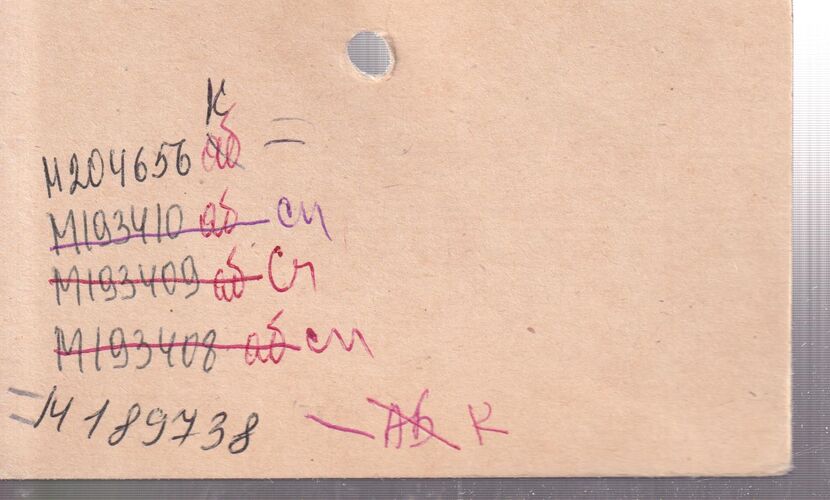 К
М204656 аб =
М193410 аб си
М193409 аб Сч
М193408 аб си
= М189738 — АБ К